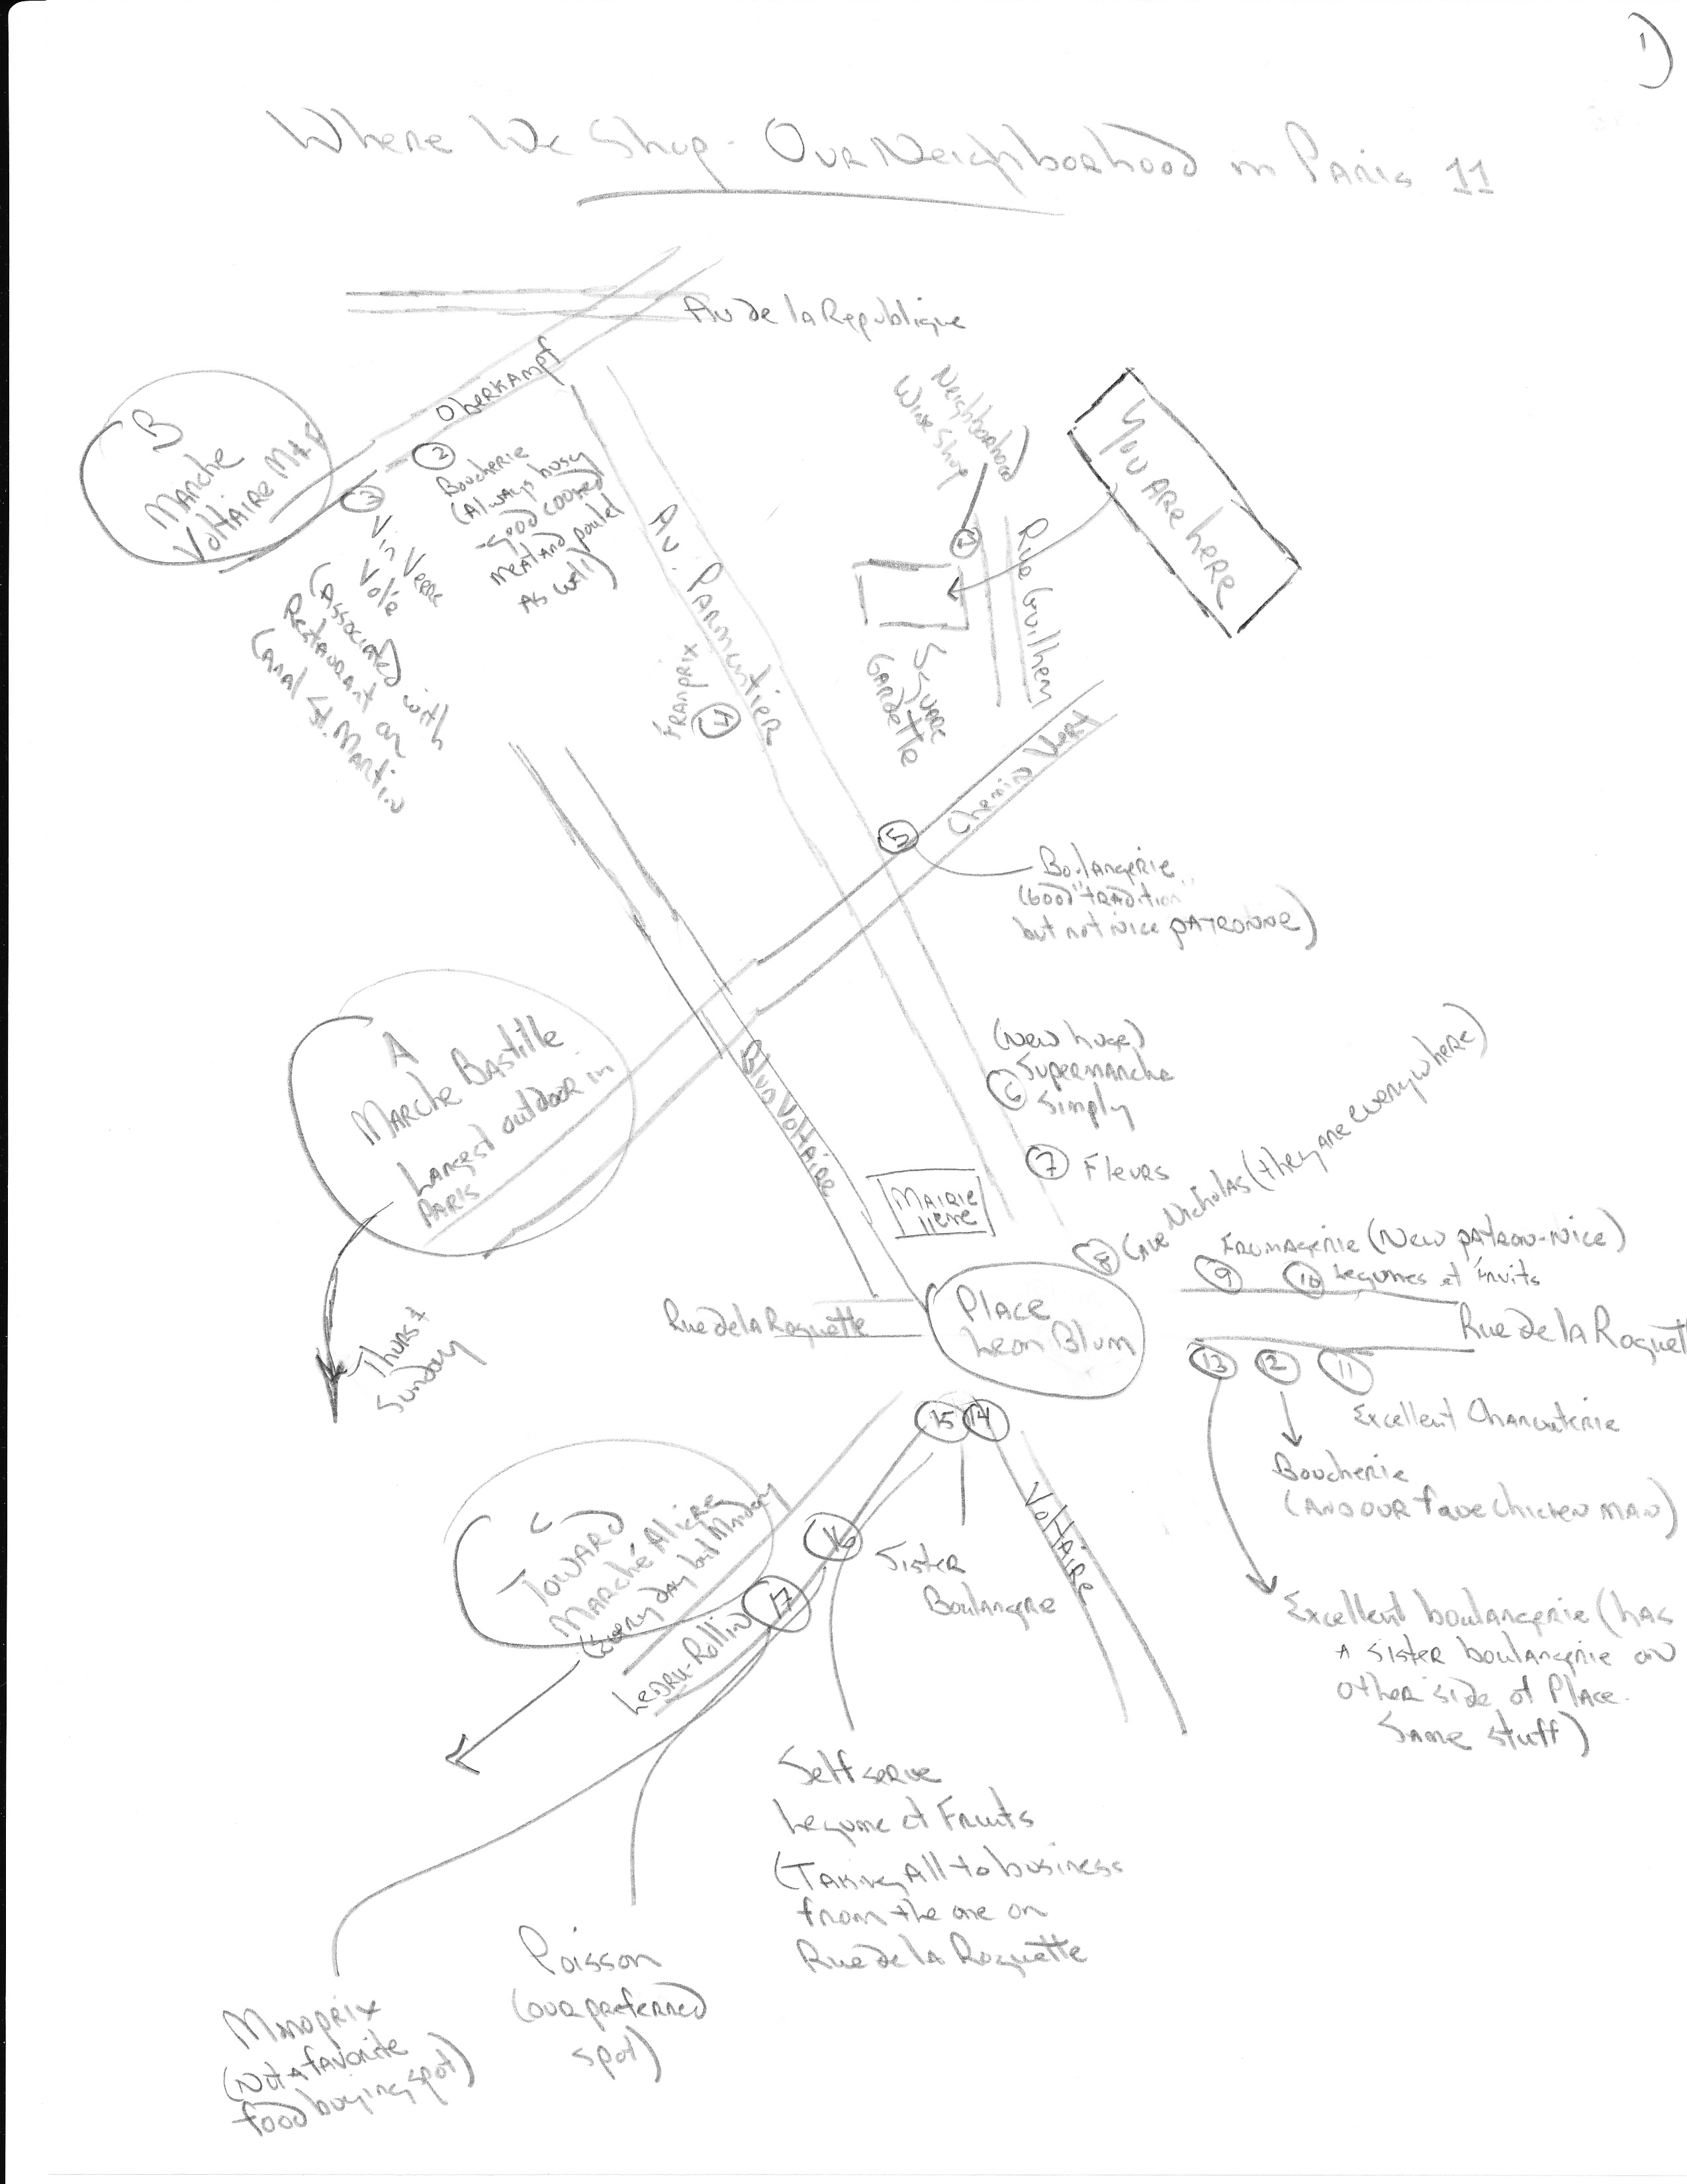 1)
Where We Shop - Our Neighborhood in Paris 11
Av de la Republique
Oberkampf
B
Marche
Voltaire M+F
2
Boucherie
(Always busy
- good cooked
meat and poulet
as well)
3
Vin Verre
Volé
(Associated
Restaurant with
on
Canal St. Martin
Av. Parmentier
Franprix
4
Neighborhood
Wine Shop
1
You are here
Rue Guilhem
Square
Gardette
Chemin Vert
5
Boulangerie
(Good "tradition"
but not nice patronne)
A
Marche Bastille
Largest outdoor in
Paris
Thurs +
Sunday
Blvd Voltaire
(New huge)
6 Supermarche
Simply
7 Fleurs
Mairie
11eme
8 Cave Nicholas (they are everywhere)
Fromagerie (New patron-nice)
9
10 Legumes et Fruits
Rue de la Roquette
Place
Leon Blum
Rue de la Roquett
13 12 11
Excellent Charcuterie
Boucherie
(and our fave chicken man)
Excellent boulangerie (has
a sister boulangerie on
other side of Place.
Same stuff)
15 14
Voltaire
Sister
Boulangere
C
Toward
Marché Aligre
(Every day but Monday
16
17
Ledru-Rollin
Self serve
Legume et Fruits
(Taking All to business
from the one on
Rue de la Roquette
Poisson
(our preferred
spot)
Monoprix
(Not a favorite
food buying spot)